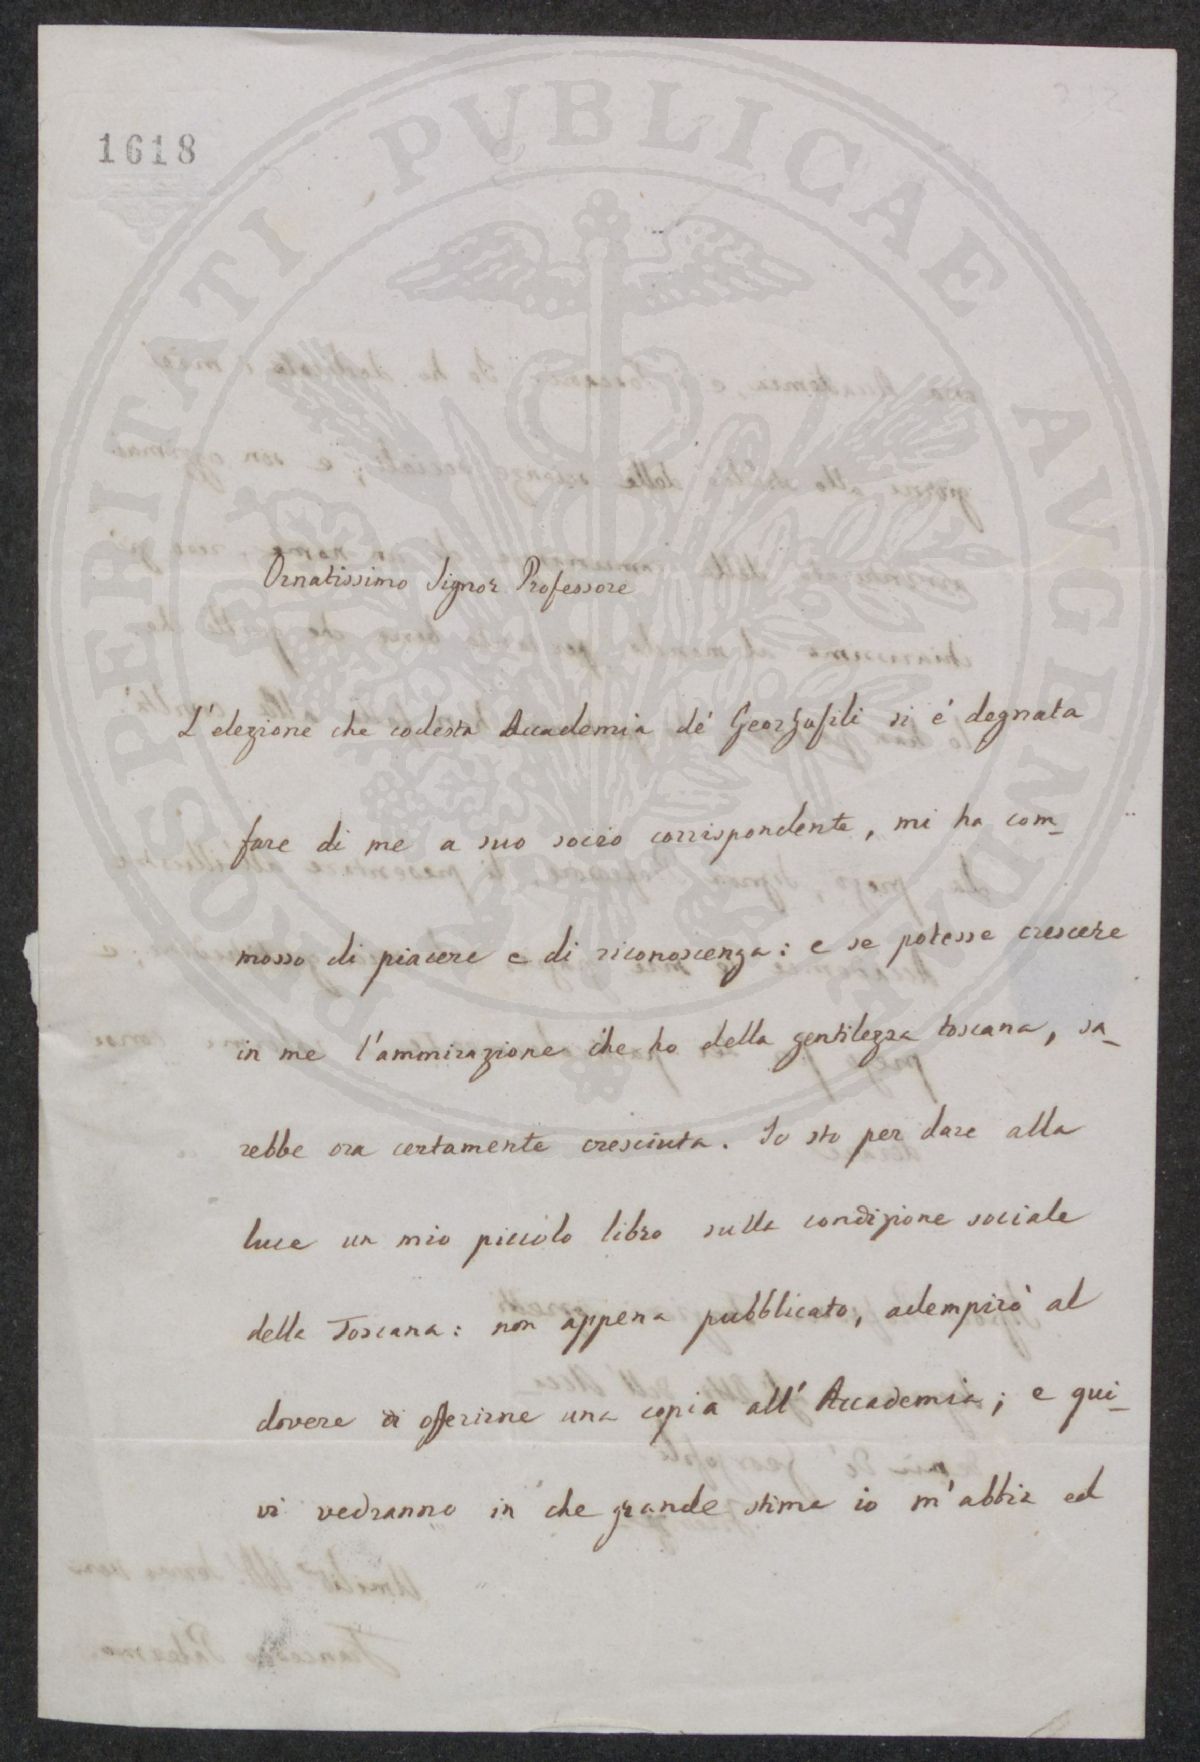 1618
PROSPERITATI PUBLICAE AUGENDAE
Ornatissimo Signor Professore
L'elezione che codesta Accademia de' Georgofili si é degnata
fare di me a suo socio corrispondente, mi ha com_
mosso di piacere e di riconoscenza: e se potesse crescere
in me l'ammirazione che ho della gentilezza toscana, sa_
rebbe ora certamente cresciuta. Io sto per dare alla
luce un mio piccolo libro sulla condizione sociale
della Toscana: non appena pubblicato, adempirò al
dovere di offerirne una copia all'Accademia; e qui_
vi vedranno in che grande stima io m'abbia ed